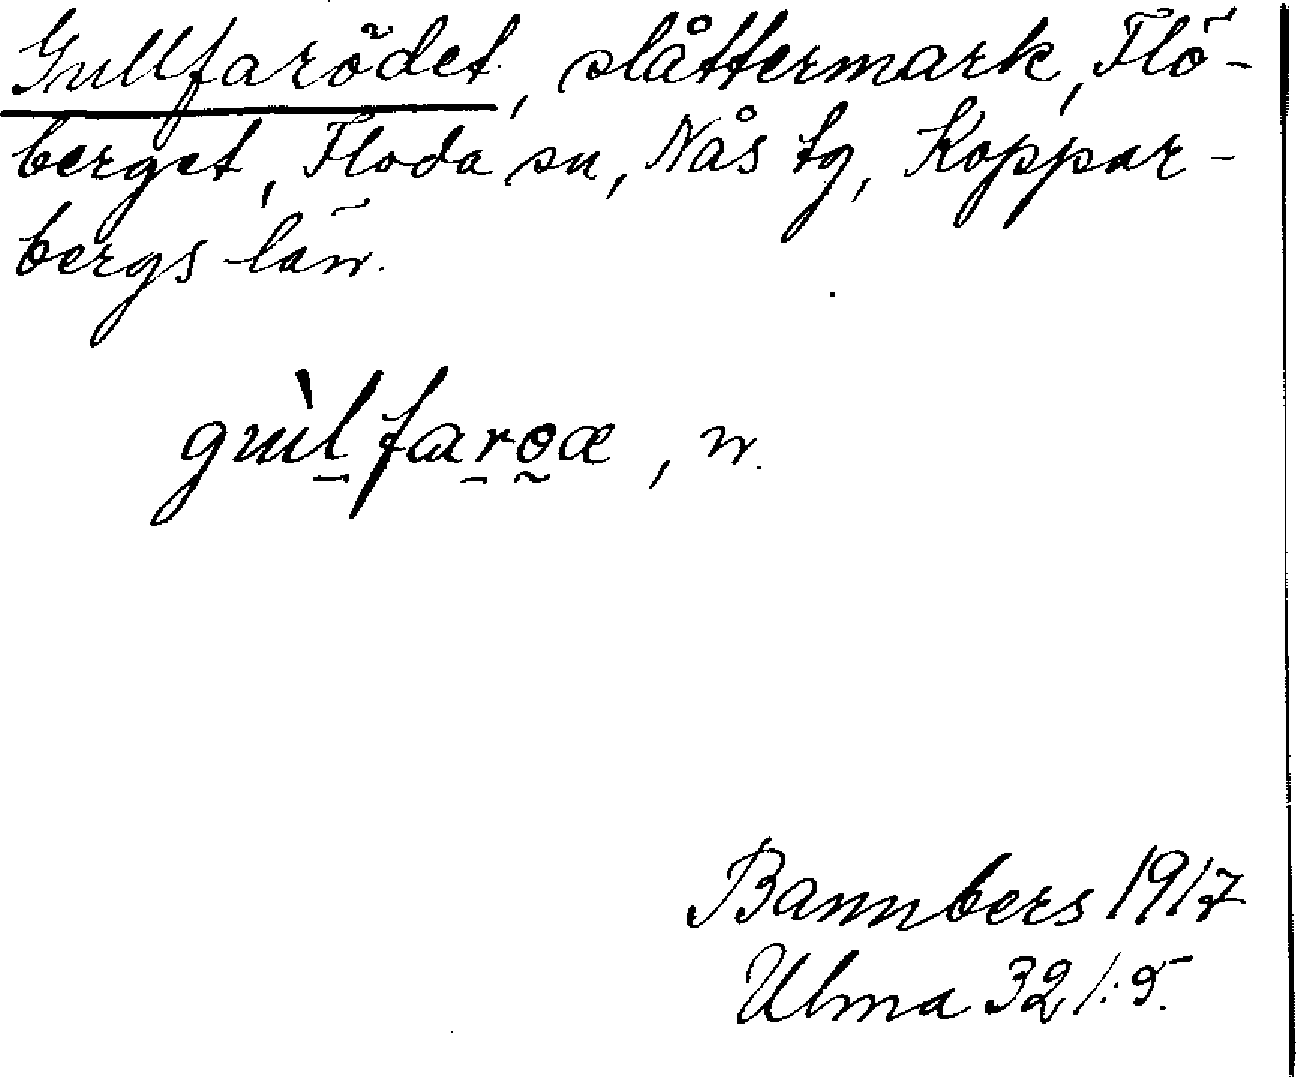 Gullfarödet, slåttermark, Flö-
berget, Floda sn, Nås tg, Koppar-
bergs län.
gùl faroæ, n.
Bannbers 1917
Ulma 321:5.